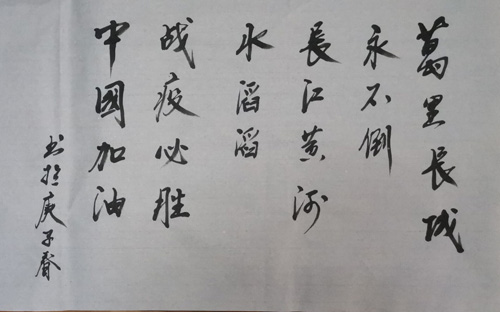 萬里長城
永不倒
長江黄河
水滔滔
战疫必胜
中國加油
书於庚子春